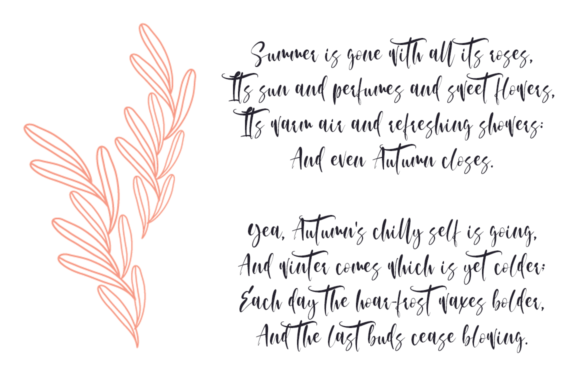 Summer is gone with all its roses,
Its sun and perfumes and sweet flowers,
Its warm air and refreshing showers:
And even Autumn closes.
Yea, Autumn's chilly self is going,
And winter comes which is yet colder;
Each day the hoar-frost waxes bolder,
And the last buds cease blowing.